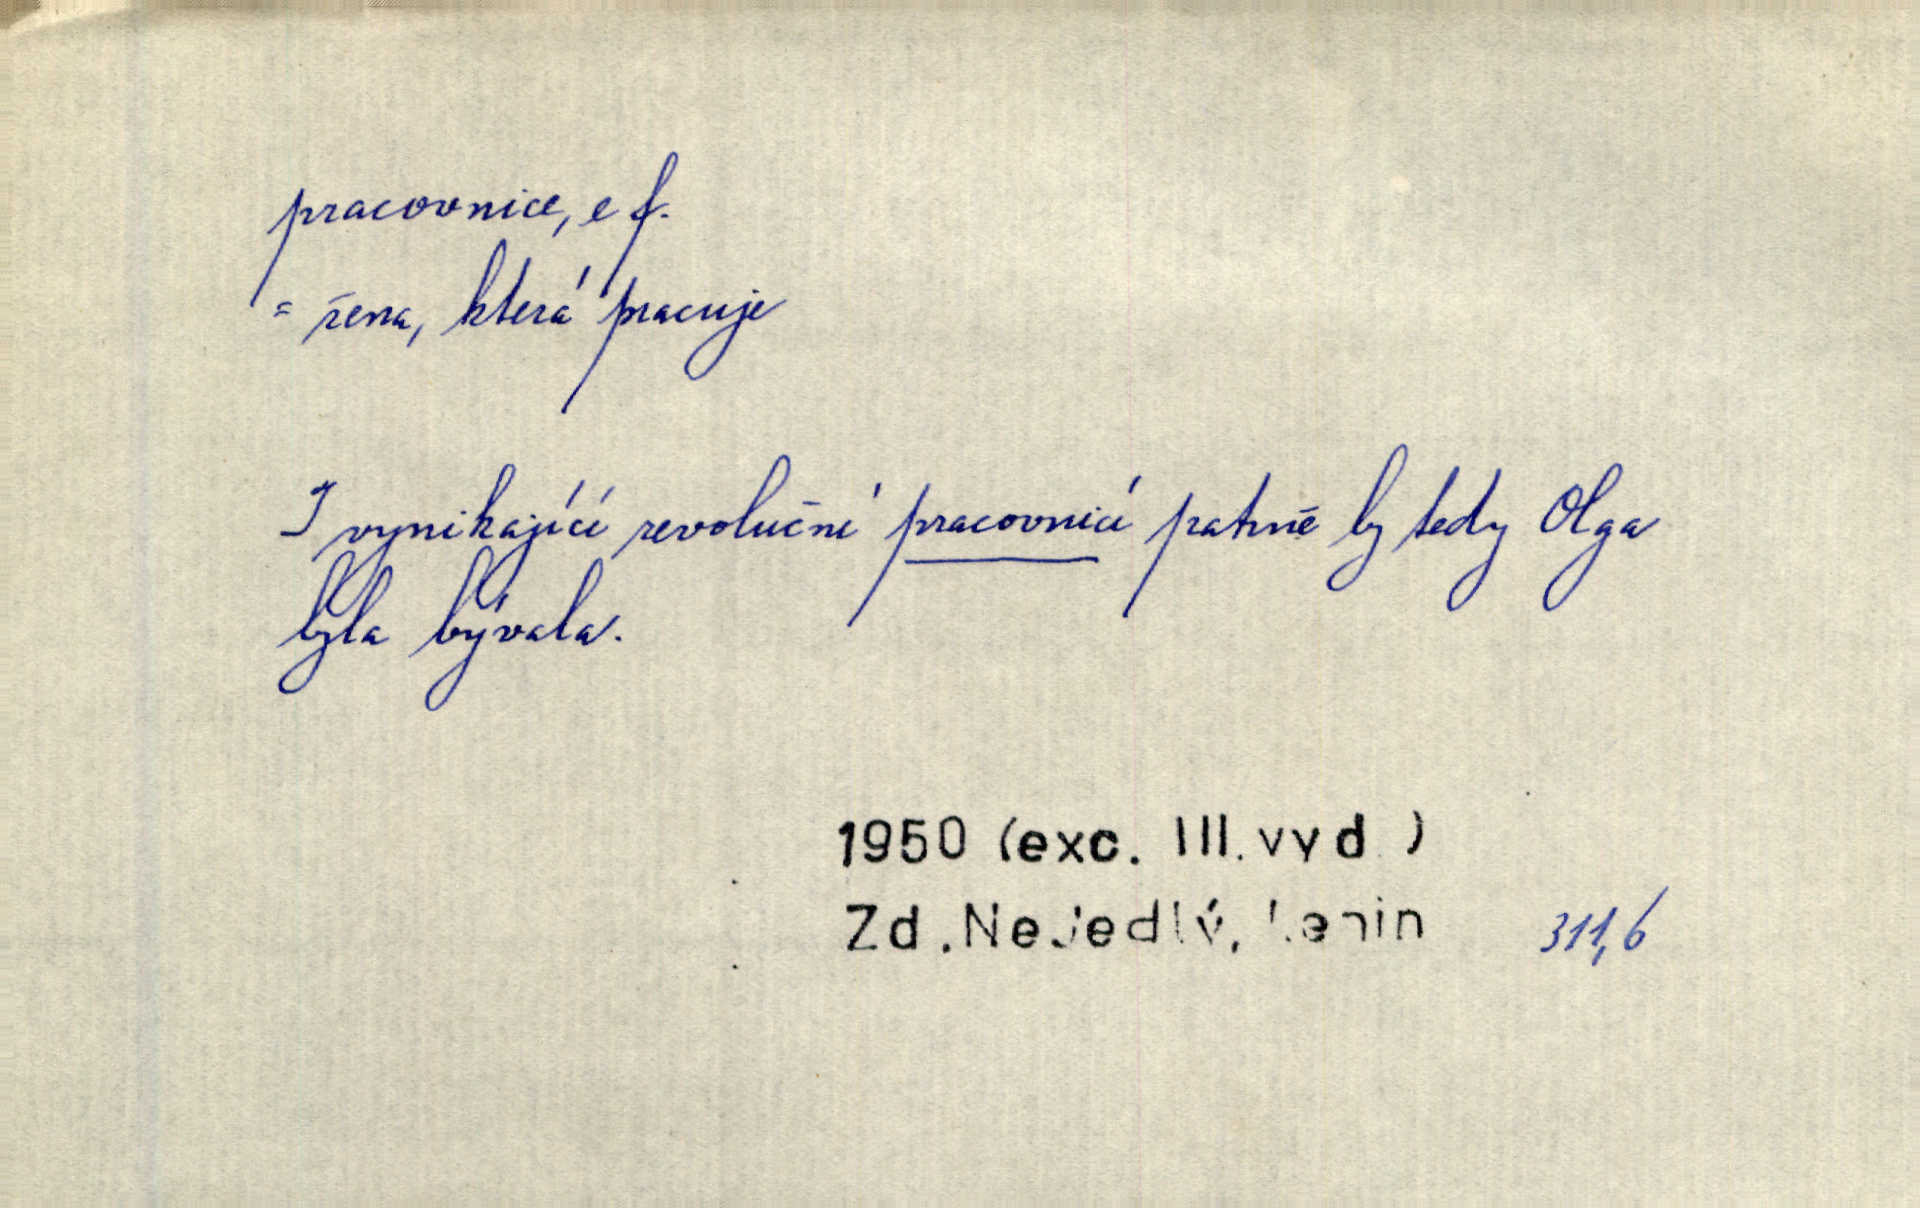 pracovnice, e f.
= žena, která pracuje
I vynikající revoluční pracovnicí patrně by tedy Olga
byla bývala.
1950 (exc. III. vyd.)
Zd. Nejedlý, Lenin 311,6